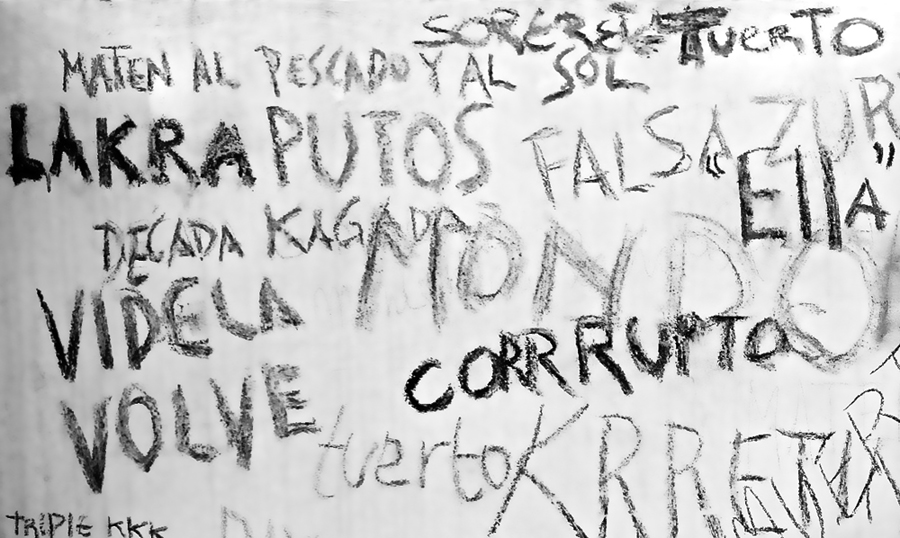 SORERETE TUERTO
MATEN AL PESCADO Y AL SOL
LAKRA PUTOS FALSA ZUR
"Ella"
DECADA KAGADA
MONDO
VIDELA
CORRRUPTO
VOLVE
tuerto KRRETAR
TRIPLE KKK